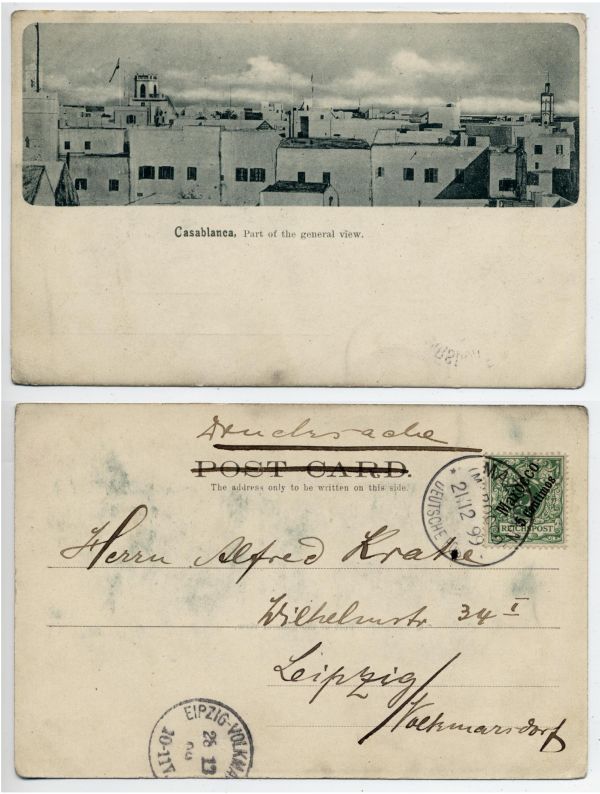 Casablanca, Part of the general view.
Drucksache
POST CARD.
The address only to be written on this side.
MAZ
(MAROC
21/12 99
DEUTSCHE
Marocco
5 Centimos
REICHSPOST
Herrn Alfred Krake
Wilhelmstr 34 I
Leipzig/
Volkmarsdorf
EIPZIG-VOLKMA
12
10-11